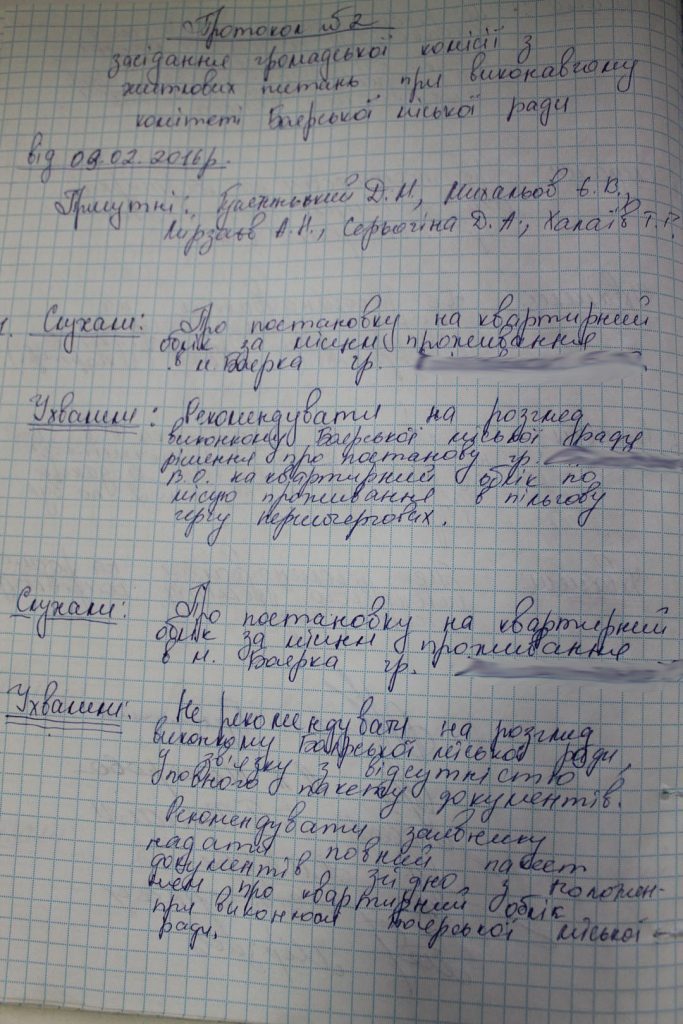 Протокол №2
засідання громадської комісії з
житлових питань при виконавчому
комітеті Боярської міської ради
від 09.02.2016р.
Присутні: Д.М., Михальов Є.В.,
Мірзаєв А.Н., Серьогіна Д.А.,
1. Слухали: Про постановку на квартирний
облік за місцем проживання
в м. Боярка гр.
Ухвалили: Рекомендувати на розгляд
виконкому Боярської міської ради
рішення про постанову гр.
В.О. на квартирний облік по
місцю проживання в пільгову
чергу першочергових.
Слухали: Про постановку на квартирний
облік за місцем проживання
в м. Боярка гр.
Ухвалили: Не рекомендувати на розгляд
виконкому Боярської міської ради,
у зв'язку з відсутністю
повного пакету документів.
Рекомендувати заявнику
надати повний пакет
документів згідно з положен-
ням про квартирний облік
при виконкомі Боярської міської
ради.